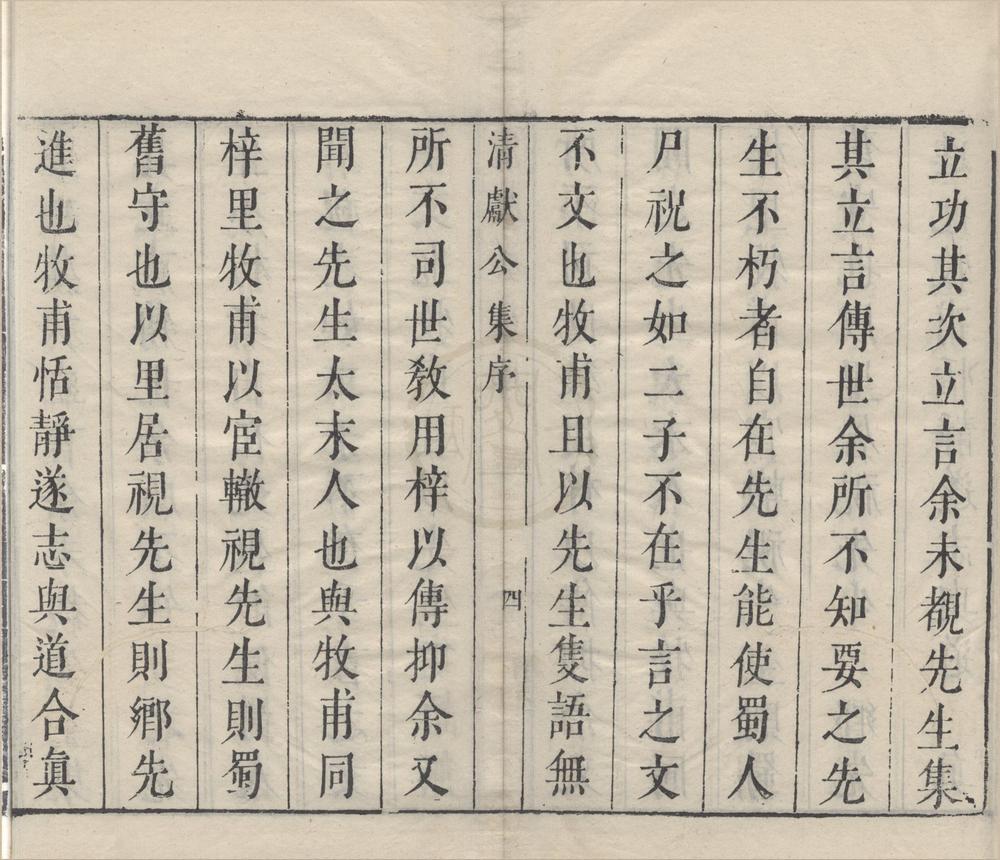 立功其次立言余未覩先生集
其立言傳世余所不知要之先
生不朽者自在先生能使蜀人
尸祝之如二子不在乎言之文
不文也牧甫且以先生隻語無
清獻公集序 四
所不司世教用梓以傳抑余又
聞之先生太末人也與牧甫同
梓里牧甫以宦轍視先生則蜀
舊守也以里居視先生則鄉先
進也牧甫恬靜遂志與道合眞